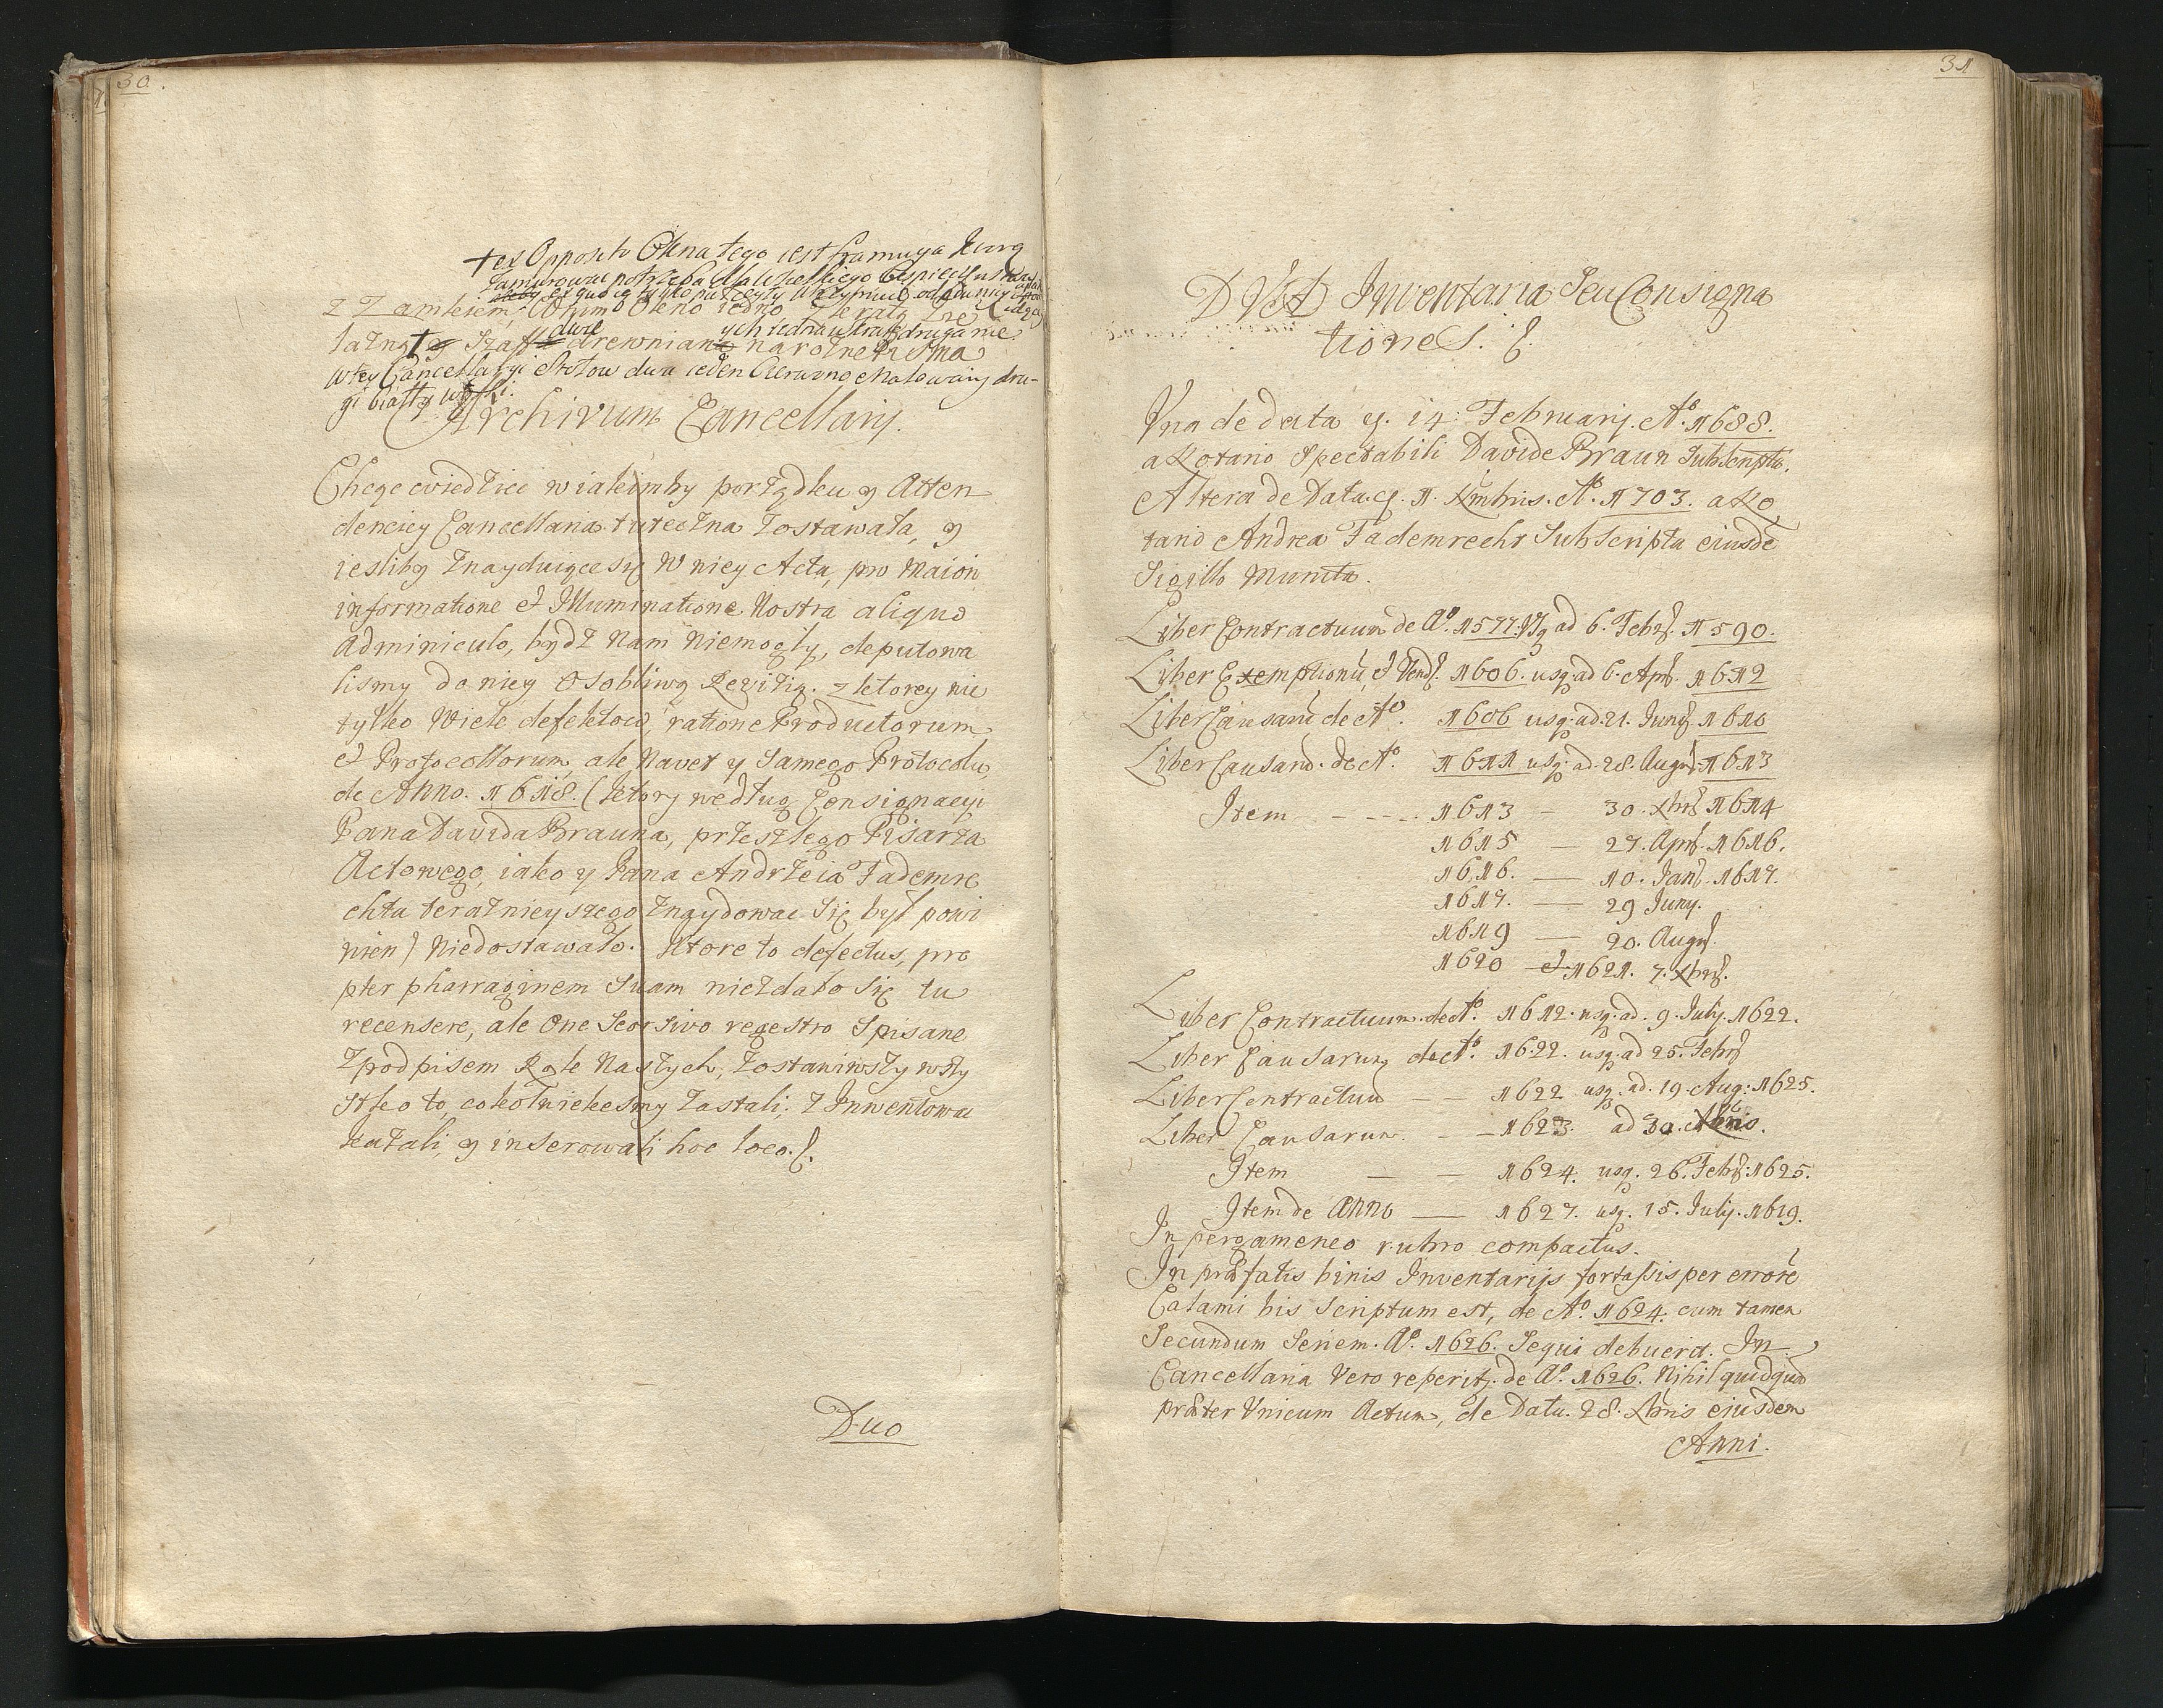 30.
+ ex Opposito Okna tego iest framuga ktorą
Zamurować potrzeba dla wszelkiego bespieczenstwa
z Zamkiem, W nim Okno iedno, z kratą Że
lazną + y Szaff dwie drewniane ych iedna u kraty druga nie
na rożne Pisma
w tey Cancellaryi Stołow dwa ieden Czerwono Malowany dru-
gi biały wąski.
Archivum Cancellarij.
Chcąc wiedziec w iakimby porządku y Atten
denciey Cancellaria tuteczna Zostawała, y
iesliby Znayduiące się W niey Acta, pro Maiori
informatione et Illuminatione Nostra aliquo
Adminiculo, bydź Nam Niemogły, deputowa
lismy do niey Osobliwą Rewizią. z ktorey nie
tylko Wiele defektow, ratione Productorum
et Protocollorum, ale Navet y Samego Protocolu
de Anno. 1618. (ktory według Consignacyi
Pana Davida Brauna, przeszłego Pisarza
Actowego, iako y Pana Andrzeia Fademre
chta teraznieyszego Znaydować Się był powi
nien) Niedostawało. Ktore to defectus, pro
pter pharraginem Suam niezdało Się tu
recensere, ale One Seorsivo regestro Spisane
Z podpisem Rąk Naszych, Zostawiwszy wszy
stko to, cokolwiekesmy Zastali, Z Inwentowac
kazali, y inserowali hoc loco.
Duo
31
DVO Inventaria Seu Consigna
tiones.
Una de data 14. Februarij. Aº. 1688.
a Notario Spectabili Davide Braun Subscripta.
Altera de Data. 1. Xmbris. Aº. 1703. a No
tario Andrea Fademrecht Subscripta eiusdē
Sigillo Munita.
Liber Contractuum de Aº. 1577. Usq ad 6. Febr. 1590.
Liber Exemptionū et Vend. 1606. usq. ad 6. Apr. 1612
Liber Causarū de Aº. 1606 usq. ad. 21. Juny 1610
Liber Causarū. de Aº. 1611 usq. ad. 28. Augu. 1613
Item - - - - 1613 - 30. Xbr 1614
1615 — 27. Apr. 1616.
1616. — 10. Jan. 1617.
1617. — 29 Juny.
1619 — 20. Augu.
1620 — et 1621. 7. Xbr.
Liber Contractuum. de Aº. 1612. usq. ad. 9. July. 1622.
Liber Causarum de Aº. 1622. usq. ad 25. Febr
Liber Contractuū — — 1622 usq. ad. 19. Aug: 1625.
Liber Causarum. - — 1623. ad 30. Xbris.
Item — — 1624. usq. 26. Febr: 1625.
Item de Anno — 1627. usq. 15. July. 1619.
In pergameneo rubro compactus.
In præfatis binis Inventarijs fortassis per errorē
Calami bis Scriptum est, de Aº. 1624. cum tamen
Secundum Seriem. Aº. 1626. Sequi debuerat. In
Cancellaria Vero reperitʒ. de Aº. 1626. Nihil quidquā
præter Unicum Actum, de Data. 28. Xbris ejusdem
Anni.